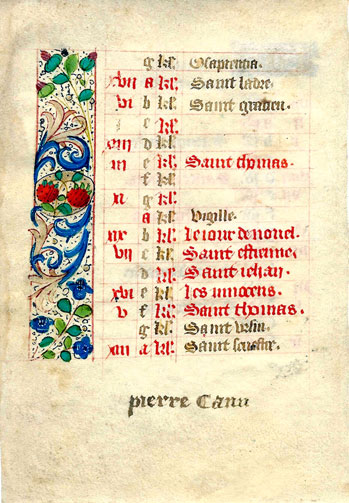 g kł. O sapientia.
xvii a kł. Saint ladre.
vi b kł. Saint gratien.
c kł.
xiiii d kł.
iii e kł. Saint thomas.
f kł.
xi g kł.
a kł. Vigille.
xix b kł. le iour de nouel.
viii c kł. Saint estienne.
d kł. Saint iehan.
xvi e kł. les innocens.
v f kł. Saint thomas.
g kł. Saint Ursin.
xiii a kł. Saint seuestre.
pierre Canu